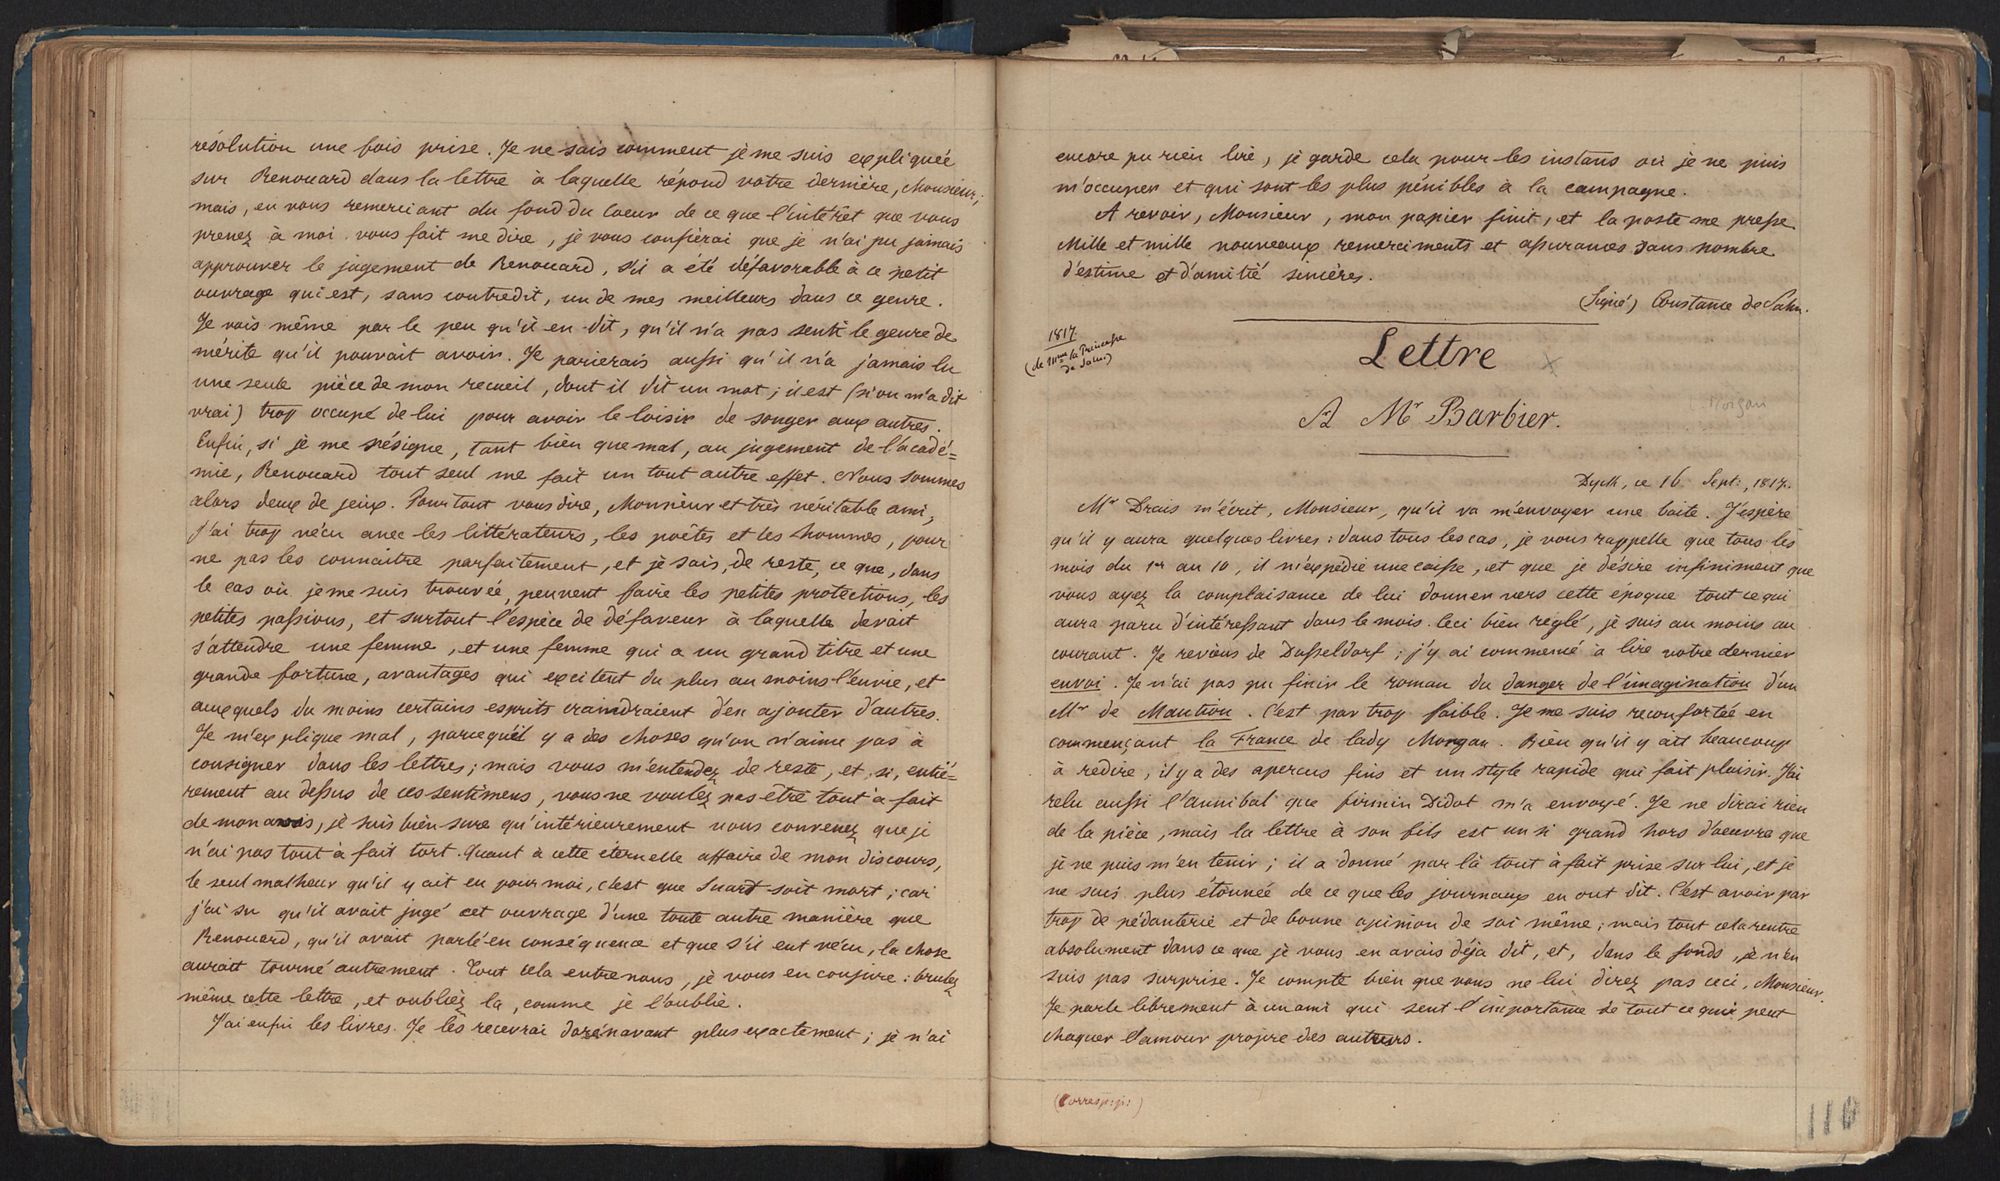 résolution une fois prise. Je ne sais comment je me suis expliquée
sur Renouard dans la lettre à laquelle répond votre dernière, Monsieur;
mais, en vous remerciant du fond du coeur de ce que l'intérêt que vous
prenez à moi vous fait me dire, je vous confierai que je n'ai pu jamais
approuver le jugement de Renouard, s'il a été défavorable à ce petit
ouvrage qui est, sans contredit, un de mes meilleurs dans ce genre.
Je vois même par le peu qu'il en dit, qu'il n'a pas senti le genre de
mérite qu'il pouvait avoir. Je parierais aussi qu'il n'a jamais lu
une seule pièce de mon recueil, dont il dit un mot; il est (si on m'a dit
vrai) trop occupé de lui pour avoir le loisir de songer aux autres.
Enfin, si je me résigne, tant bien que mal, au jugement de l'acadé=
mie, Renouard tout seul me fait un tout autre effet. Nous sommes
alors deux de jeux. Pour tout vous dire, Monsieur et très véritable ami,
j'ai trop vécu avec les littérateurs, les poètes et les hommes, pour
ne pas les connaître parfaitement, et je sais, de reste, ce que, dans
le cas où je me suis trouvée, peuvent faire les petites protections, les
petites passions, et surtout l'espèce de défaveur à laquelle devait
s'attendre une femme, et une femme qui a un grand titre et une
grande fortune, avantages qui excitent du plus au moins l'envie, et
auxquels du moins certains esprits craindraient d'en ajouter d'autres.
Je m'explique mal, parcequ'il y a des choses qu'on n'aime pas à
consigner dans les lettres; mais vous m'entendez de reste, et, si, entiè=
rement au dessus de ces sentimens, vous ne voulez pas être tout à fait
de mon avis, je suis bien sure qu'intérieurement vous convenez que je
n'ai pas tout à fait tort. Quant à cette éternelle affaire de mon discours,
le seul malheur qu'il y ait eu pour moi, c'est que Suard soit mort; car
j'ai su qu'il avait jugé cet ouvrage d'une toute autre manière que
Renouard, qu'il avait parlé en conséquence et que s'il eut vécu, la chose
aurait tourné autrement. Tout cela entre nous, je vous en conjure: brulez
même cette lettre, et oubliez la, comme je l'oublie.
J'ai enfin les livres. Je les recevrai dorénavant plus exactement; je n'ai
encore pu rien lire, je garde cela pour les instans où je ne puis
m'occuper et qui sont les plus pénibles à la campagne.
A revoir, Monsieur, mon papier finit, et la poste me presse
Mille et mille nouveaux remerciments et assurances sans nombre
d'estime et d'amitié sincères.
(Signé) Constance de Salm.
1817
(de Mme la Princesse
de Salm)
Lettre
A Mr Barbier.
Dyck, ce 16 Sept:, 1817.
Mr Drais m'écrit, Monsieur, qu'il va m'envoyer une boite. J'espère
qu'il y aura quelques livres: dans tous les cas, je vous rappelle que tous les
mois du 1er au 10, il m'expédie une caisse, et que je désire infiniment que
vous ayez la complaisance de lui donner vers cette époque tout ce qui
aura paru d'intéressant dans le mois. Ceci bien réglé, je suis au moins au
courant. Je reviens de Dusseldorf; j'y ai commencé à lire votre dernier
envoi. Je n'ai pas pu finir le roman du danger de l'imagination d'un
Mr de Maution. C'est par trop faible. Je me suis reconfortée en
commençant la France de lady Morgan. Bien qu'il y ait beaucoup
à redire, il y a des apercus fins et un style rapide qui fait plaisir. J'ai
relu aussi l'Annibal que firmin Didot m'a envoyé. Je ne dirai rien
de la pièce, mais la lettre à son fils est un si grand hors d'oeuvre que
je ne puis m'en tenir; il a donné par là tout à fait prise sur lui, et je
ne suis plus étonnée de ce que les journaux en ont dit. C'est avoir par
trop de pédanterie et de bonne opinion de soi même; mais tout cela rentre
absolument dans ce que je vous en avais déja dit, et, dans le fonds, je n'en
suis pas surprise. Je compte bien que vous ne lui direz pas ceci, Monsieur.
Je parle librement à un ami qui sent l'importance de tout ce qui peut
choquer l'amour propre des auteurs.
(Corresp:p:)
110